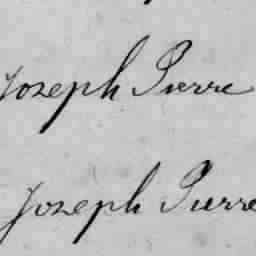 Joseph Pierre
Joseph Pierre